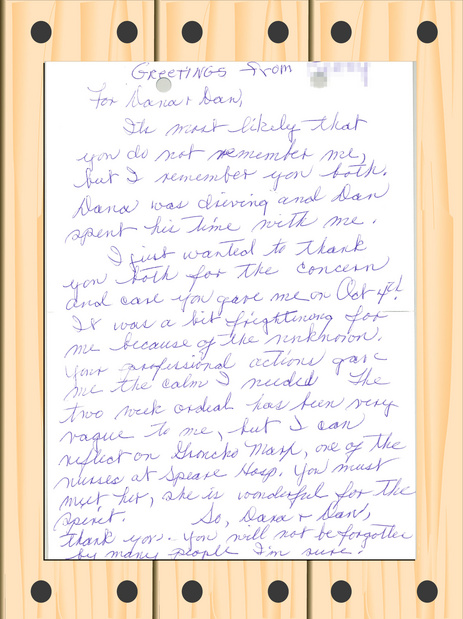 GREETINGS from
For Dana & Dan,
Its most likely that
you do not remember me,
but I remember you both.
Dana was driving and Dan
spent his time with me.
I just wanted to thank
you both for the concern
and care you gave me on Oct 4th!
It was a bit frightining for
me because of the unknown.
Your professional actions gave
me the calm I needed The
two week ordeal has been very
vague to me, but I can
reflect on Marp, one of the
nurses at Speare Hosp. You must
meet her, she is wonderful for the
spirit. So, Dana & Dan,
thank you. You will not be forgotten
by many people I'm sure!